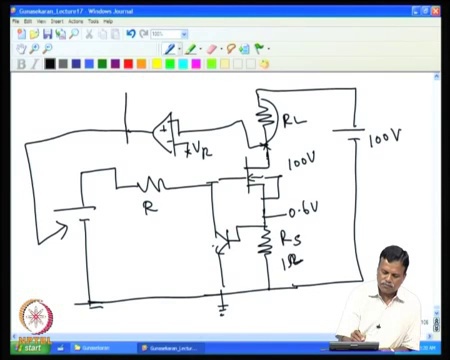 Gunasekaran_Lecture17 - Windows Journal
File Edit View Insert Actions Tools Help
100%
B I
+
RL
-
VR
100V
100V
R
0.6V
RS
1Ω
NPTEL
start
Gunasekaran
Gunasekaran_Lectur...